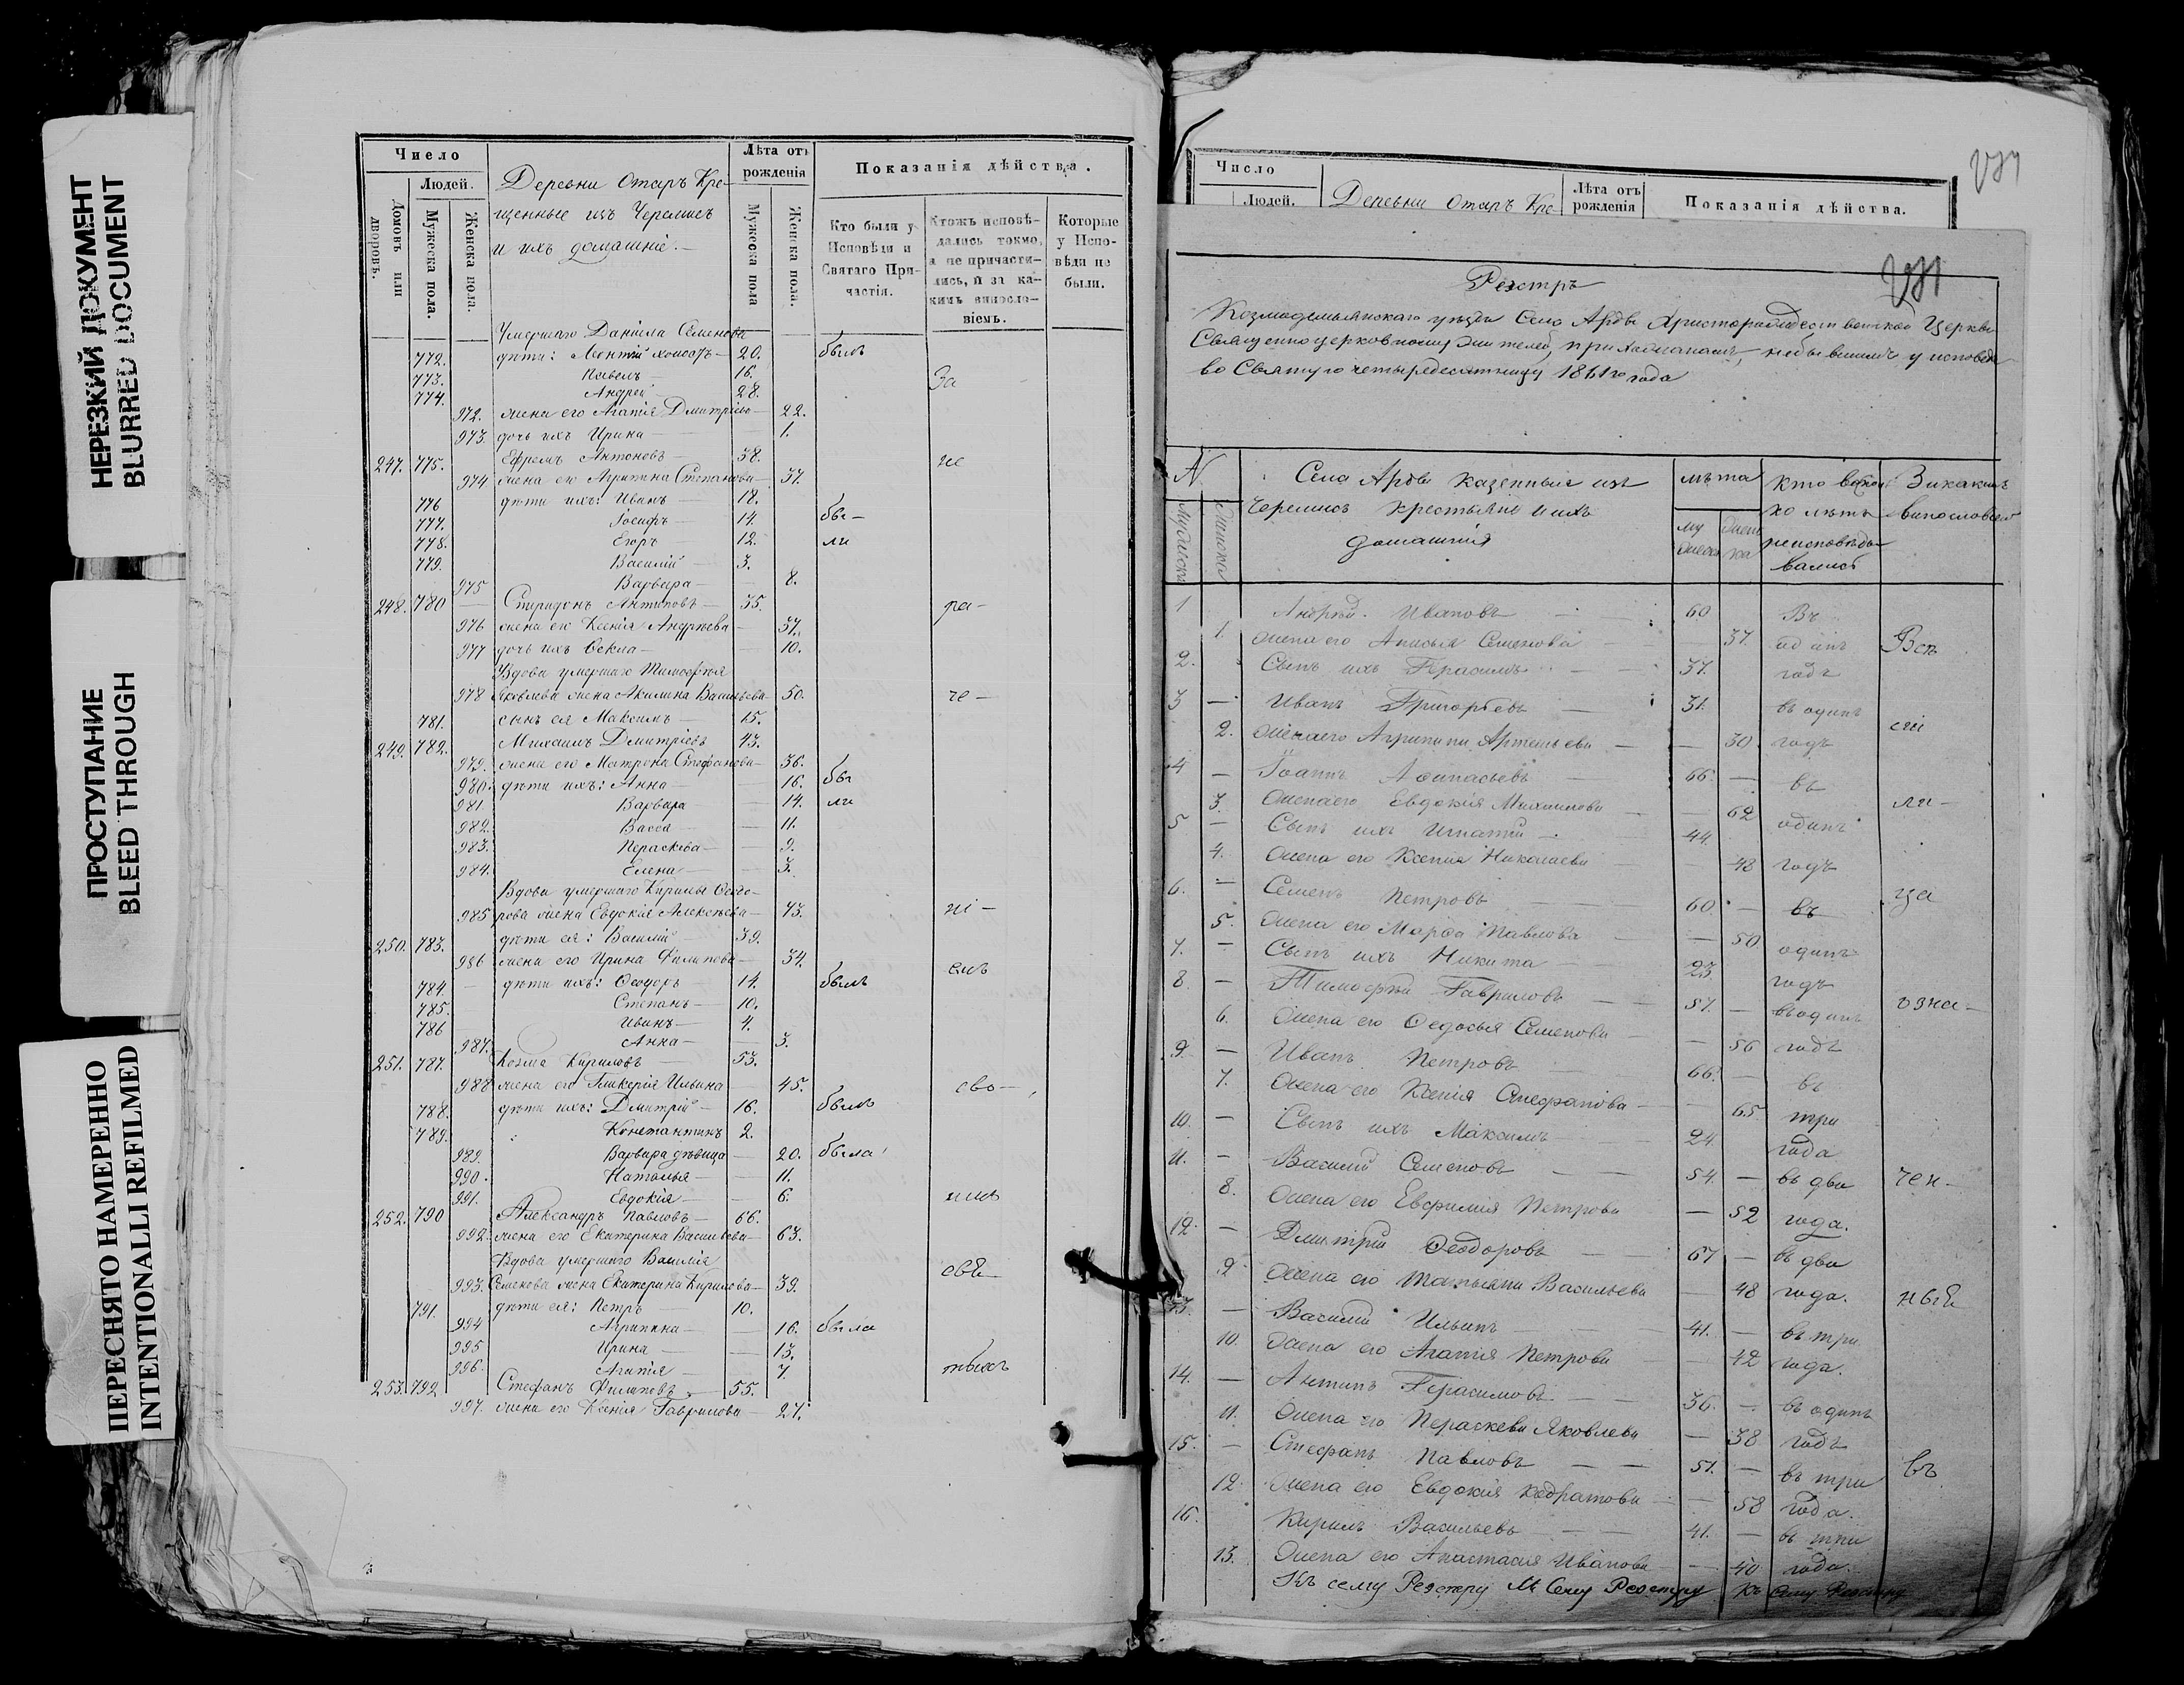 НЕРЕЗКИЙ ДОКУМЕНТ
BLURRED DOCUMENT
ПРОСТУПАНИЕ
BLEED THROUGH
ПЕРЕСНЯТО НАМЕРЕННО
INTENTIONALLI REFILMED
Число
Людей.
Домовъ или дворовъ.
Мужеска пола.
Женска пола.
Деревни Отаръ Кре-
щенные изъ Черемисъ
и ихъ домашніе.
Лѣта отъ рожденія
Мужеска пола
Женска пола.
Показанія дѣйства.
Кто были у Исповѣди и Святаго Причастія.
Ктожъ исповѣдались токмо, а не причастились, и за какимъ винословіемъ.
Которые у Исповѣди не были.
Умершаго Даніила Семенова
772. дѣти: Леонтій холостъ 20. былъ
773. Павелъ 16. За
774. Андрей 28.
972. жена его Агапія Дмитріева 22.
973. дочь ихъ Ирина 1.
247. 775. Ефремъ Антоновъ 38. не
974 жена его Агрипина Степанова 37.
776 дѣти ихъ: Иванъ 18.
777. Іосифъ 14. бы-
778. Егоръ 12. ли
779. Василій 3.
975 Варвара 8.
248. 780 Спиридонъ Антиповъ 35. ра-
976 жена его Ксенія Андреева 37.
977 дочь ихъ Ѳекла 10.
Вдова умершаго Тимофея
978 Яковлева жена Акилина Васильева 50. че-
781. сынъ ея Максимъ 15.
249. 782. Михаилъ Дмитріевъ 43.
979. жена его Матрона Стефанова 36.
980. дѣти ихъ: Анна 16. бы
981 Варвара 14. ли
982. Васса 11.
983. Параскева 9.
984. Елена 3.
Вдова умершаго Кирилы Ѳедо-
985 рова жена Евдокія Алексѣева 43. ні-
250. 783. дѣти ея: Василій 39.
986 жена его Ирина Филипова 34. емъ
784. дѣти ихъ: Ѳеодоръ 14. былъ
785. Степанъ 10.
786 Иванъ 4.
987. Анна 3.
251. 787. Козма Кириловъ 53.
988 жена его Гликерія Ильина 45. сво-
788. дѣти ихъ: Дмитрій 16. былъ
789. Константинъ 2.
989. Варвара дѣвица 20. была
990. Наталья 11.
991. Евдокія 6. имъ
252. 790 Александръ Павловъ 66.
992. жена его Екатерина Васильева 63.
Вдова умершаго Василія
993. Семенова жена Екатерина Кирилова 39.
791. дѣти ея: Петръ 10.
994 Агрипина 16. была
995 Ирина 13.
996. Агапія 7.
253. 792 Стефанъ Филиповъ 55.
997. жена его Ксенія Гаврилова 27.
Число
Людей.
Деревни Отаръ Кре-
Лѣта отъ рожденія
Показанія дѣйства.
Реэстръ
Козмодемьянскаго уѣзда Села Арды Христорождественской Церкви
въ Святую четыредесятницу 1861го года
N
Села Арды казенныя изъ
Черемисъ крестьяне и ихъ
домашнія
лѣта
1 Андрей Ивановъ 60 Въ
1. Жена его Анисья Семенова 37. одинъ Всѣ
2. Сынъ ихъ Герасимъ 37. годъ
3 Иванъ Григорьевъ 31. въ одинъ сіи
2. Жена его Агрипина Артемьева 30. годъ
4 Іоаннъ Аѳанасьевъ 66. въ
3. Жена его Евдокія Михаилова 62 одинъ ли-
5 Сынъ ихъ Игнатій 44.
4. Жена его Ксенія Николаева 48 годъ
6. Семенъ Петровъ 60. въ ца
5. Жена его Марѳа Павлова 50 одинъ
7. Сынъ ихъ Никита 23. годъ
8. Тимофѣй Гавриловъ 57. въ одинъ озна-
6. Жена его Ѳедосья Семенова 56 годъ
9. Иванъ Петровъ 66. въ
7. Жена его Ксенія Стефанова 65. три
10. Сынъ ихъ Максимъ 24. года
11. Василій Семеновъ 54. въ два чен-
8. Жена его Евфимія Петрова 52 года.
12. Дмитрій Ѳеодоровъ 67 въ два
9 Жена его Татьяна Васильева 48 года. ный
13. Василій Ильинъ 41. въ три
10. Жена его Агапія Петрова 42 года.
14. Антипъ Герасимовъ 36. въ одинъ
11. Жена его Параскева Яковлева 38 годъ
15. Стефанъ Павловъ 51. въ три въ
12. Жена его Евдокія Кодратова 58 года.
16. Кирилъ Васильевъ 41. въ три
13. Жена его Анастасія Иванова 40 года.
Къ сему Реэстру Къ Сему Реэстру Къ Сему Реэстру